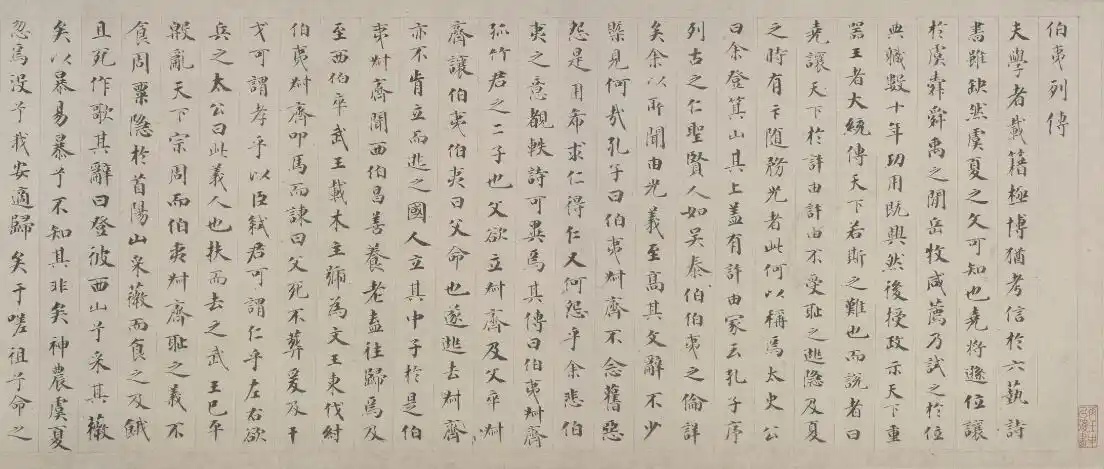 伯夷列傳
夫學者載籍極博猶考信於六藝詩
書雖缺然虞夏之文可知也堯將遜位讓
於虞舜舜禹之間岳牧咸薦乃試之於位
典職數十年功用既興然後授政示天下重
器王者大統傳天下若斯之難也而說者曰
堯讓天下於許由許由不受恥之逃隱及夏
之時有卞隨務光者此何以稱焉太史公
曰余登箕山其上蓋有許由冢云孔子序
列古之仁聖賢人如吳泰伯伯夷之倫詳
矣余以所聞由光義至高其文辭不少
槩見何哉孔子曰伯夷叔齊不念舊惡
怨是用希求仁得仁又何怨乎余悲伯
夷之意覩軼詩可異焉其傳曰伯夷叔齊
孤竹君之二子也父欲立叔齊及父卒叔
齊讓伯夷伯夷曰父命也遂逃去叔齊
亦不肯立而逃之國人立其中子於是伯
夷叔齊聞西伯昌善養老盍往歸焉及
至西伯卒武王載木主號為文王東伐紂
伯夷叔齊叩馬而諫曰父死不葬爰及干
戈可謂孝乎以臣弒君可謂仁乎左右欲
兵之太公曰此義人也扶而去之武王已平
殷亂天下宗周而伯夷叔齊恥之義不
食周粟隱於首陽山采薇而食之及餓
且死作歌其辭曰登彼西山兮采其薇
矣以暴易暴兮不知其非矣神農虞夏
忽焉沒兮我安適歸矣于嗟徂兮命之